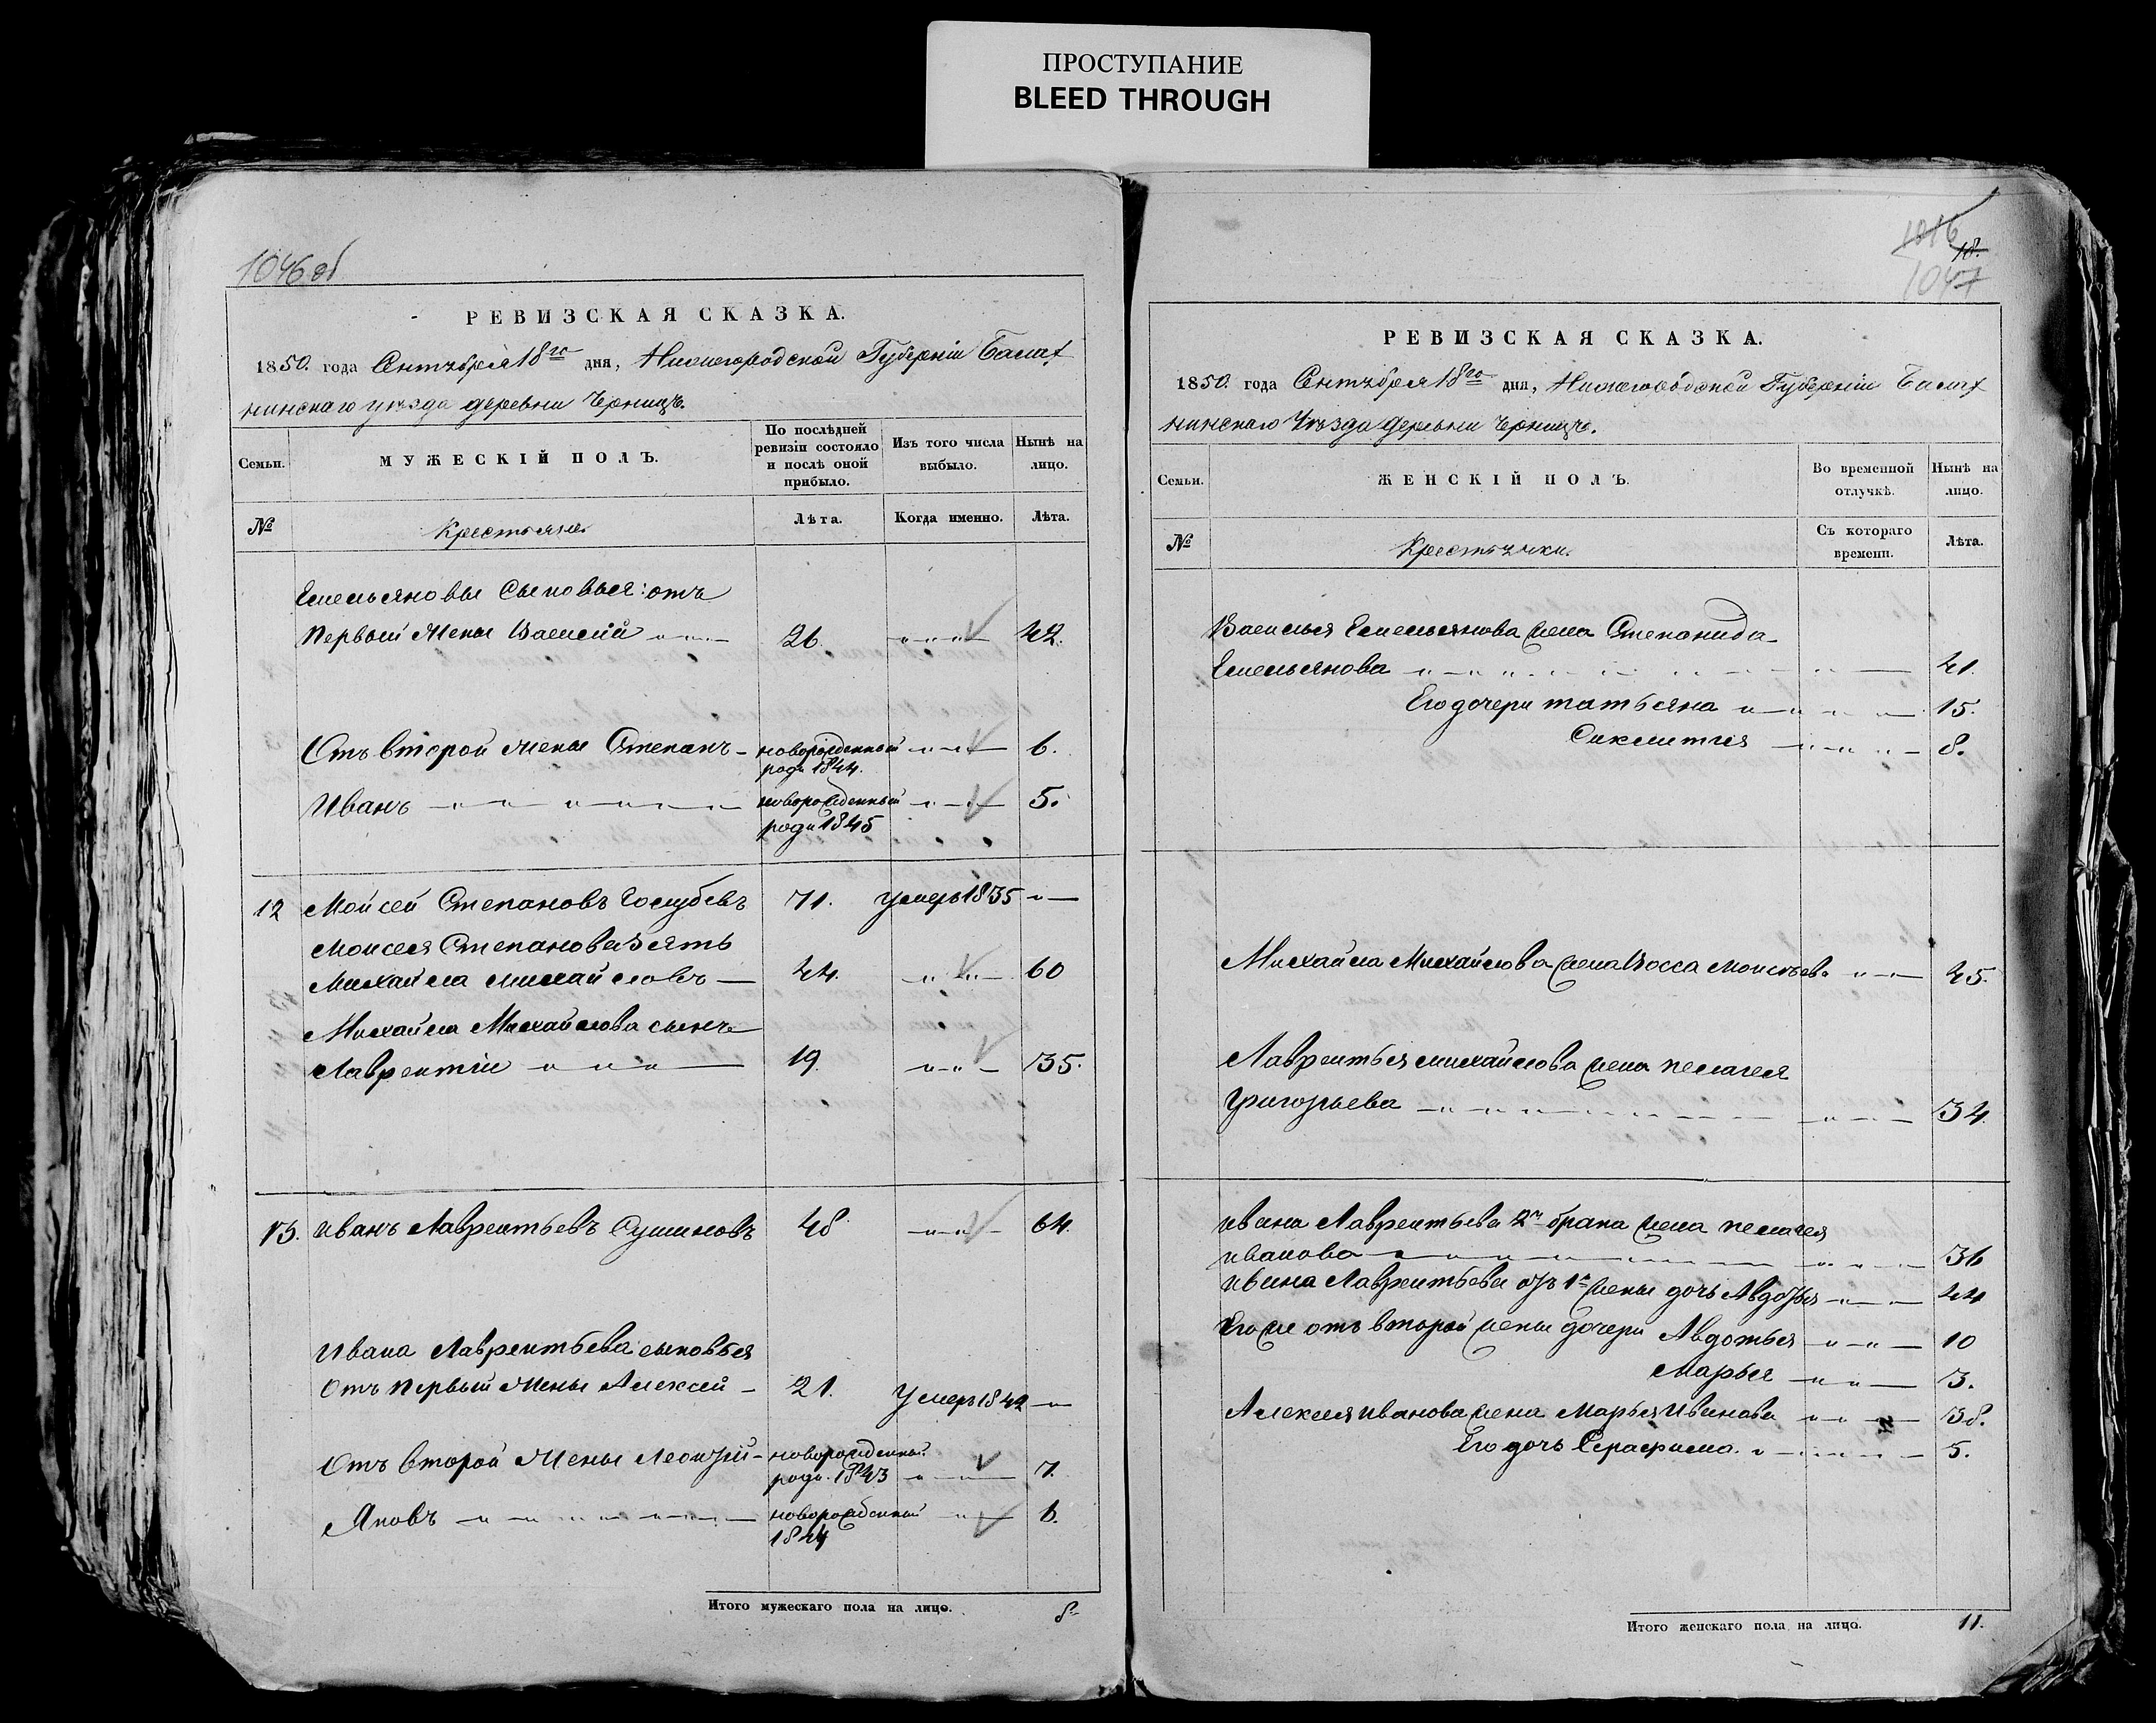 ПРОСТУПАНИЕ
BLEED THROUGH
1046 об
РЕВИЗСКАЯ СКАЗКА.
1850. года Сентября 18го дня, Нижегородской Губерніи Балах
нинскаго уезда деревни Черницъ.
Семьи.
МУЖЕСКІЙ ПОЛЪ.
По послѣдней
ревизіи состояло
и послѣ оной
прибыло.
Изъ того числа
выбыло.
Нынѣ на
лицо.
№
Крестьяне.
Лѣта.
Когда именно.
Лѣта.
Емельяновы Сыновья: отъ
первый Жены Василій 26. 42.
Отъ второй жены Степанъ новорожденный 6.
роди 1844.
Иванъ новорожденный 5.
роди 1845
12 Моисей Степановъ Голубевъ 71. умеръ 1835
Моисея Степанова Зять
Михайла михайловъ 44. 60
Михайла Михайлова сынъ
Лаврентіи 19. 35.
13. Иванъ Лаврентьевъ Сушиновъ 48 64.
Ивана Лаврентьева сыновья
Отъ первый жены Алексей 21. Умеръ 1842
Отъ второй Жены Леонтій новорожденный
роди. 1843 7.
Яковъ новорожденный 6.
1844
Итого мужескаго пола на лицо. 8
1016
18.
1047
РЕВИЗСКАЯ СКАЗКА.
1850. года Сентября 18го дня, Нижегородской Губерніи Балах
нинскаго Уезда деревни Черницъ.
Семьи.
ЖЕНСКІЙ ПОЛЪ.
Во временной
отлучкѣ.
Нынѣ на
лицо.
№
Крестьянки.
Съ котораго
времени.
Лѣта.
Василья Емельянова жена Степанида
Емельянова 41.
Его дочери татьяна 15.
Сиклитія 8.
Михайла Михайлова жена Восса Моисъева 45.
Лаврентья михайлова жена пелагея
Григорьева 34.
Ивана Лаврентьева 2го брака жена пелагея
иванова 36
Ивана Лаврентьева отъ 1й жены дочь Авдотья 44
Его же отъ второй жены дочери Авдотья 10
Марья 3.
Алексея иванова жена Марья Иванова 38.
Его дочь Серафима. 5.
Итого женскаго пола на лицо. 11.